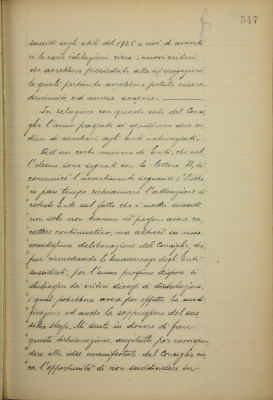 547
sussidi sugli utili del 1925 e così di avverti
re le varie istituzioni circa i nuovi criteri
che avrebbero presieduto alle erogazioni
le quali pertanto avrebbero potuto essere
diminuite od anche sospese.
In relazione con questi voti del Consi
glio l'anno passato si spedirono due or
dini di circolari agli Enti interessati.
Ad un certo numero di Enti, che nel
l'elenco sono segnati con la lettera B, si
comunicò l'avvertimento seguente: "Debbo
"in pari tempo richiamare l'attenzione di
"codesto Ente sul fatto che i nostri sussidi
"non solo non hanno nè possono avere ca
"rattere continuativo, ma altresì su una
"recentissima deliberazione del Consiglio, che,
"pur riconoscendo le benemerenze degli Enti
"sussidiati, per l'anno prossimo dispose
"dei criteri diversi di distribuzione,
"i quali potrebbero avere per effetto la modi
"ficazione od anche la soppressione del sus
"sidio stesso. Mi sento in dovere di fare
"questa dichiarazione, anzitutto per corrispon
dere alle idee manifestate dal Consiglio cir
ca l'opportunità di non suddividere in